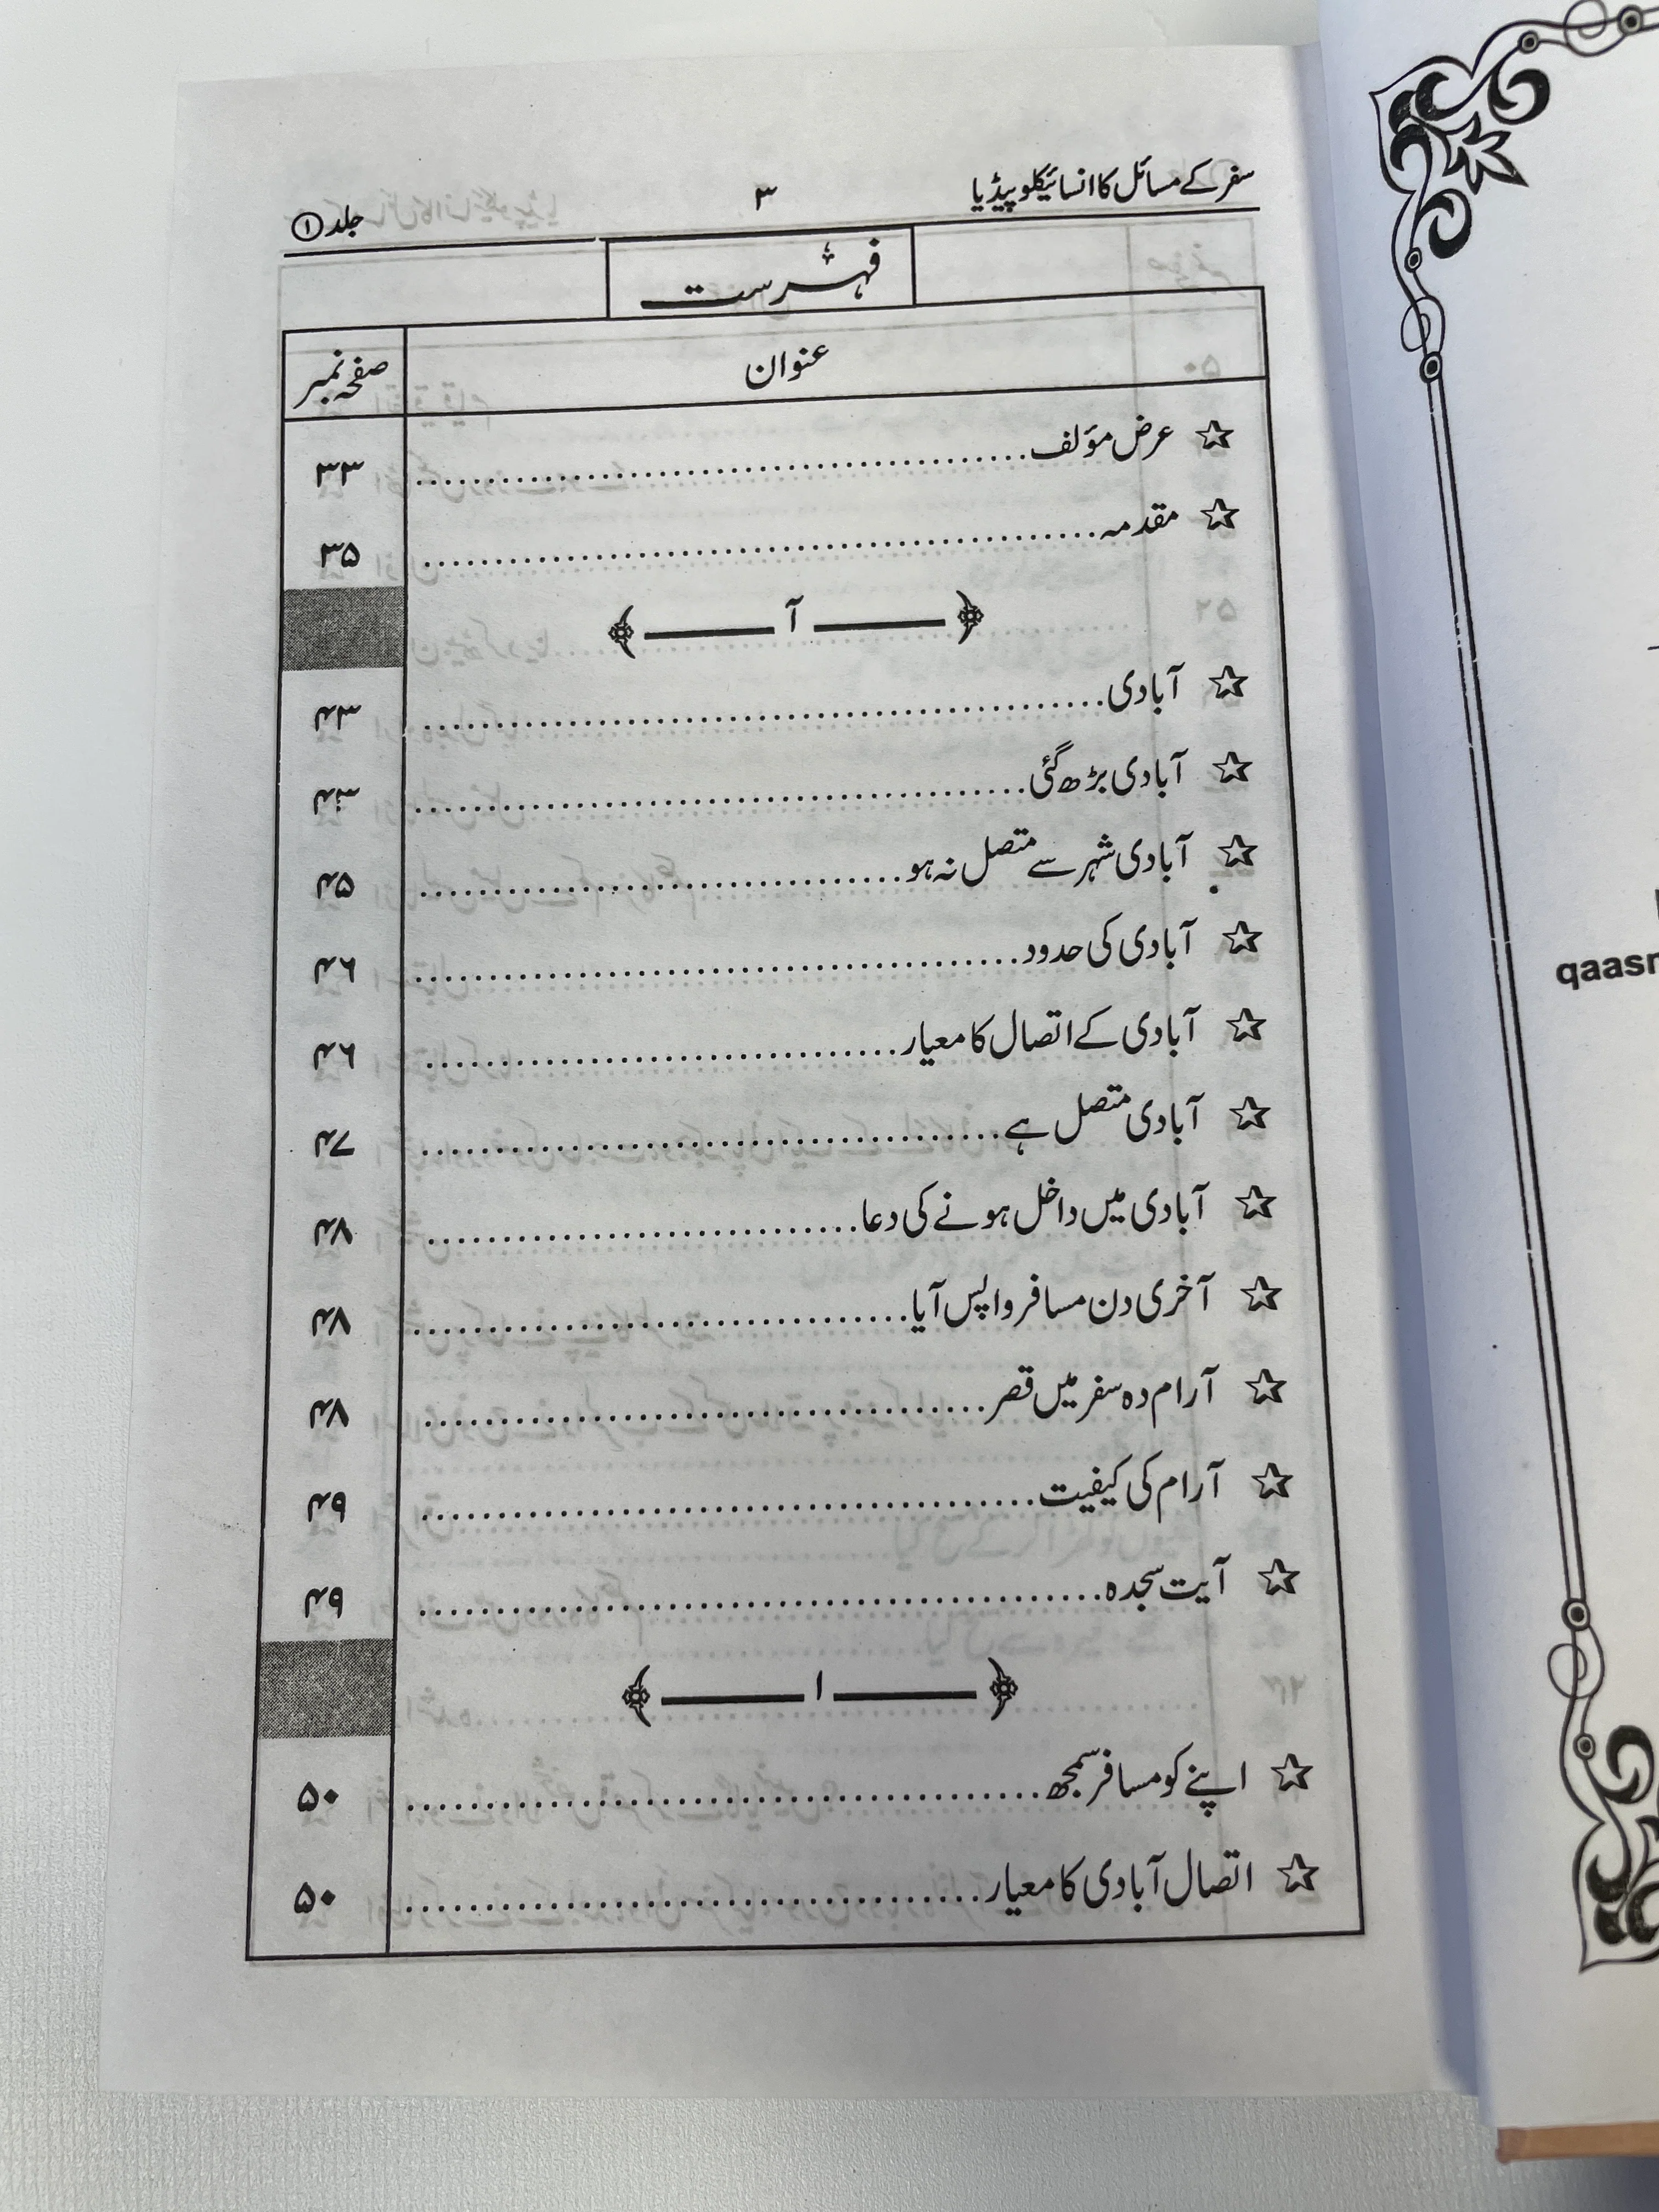 سفر کے مسائل کا انسائیکلوپیڈیا ۳ جلد ①
فہرست
عنوان صفحہ نمبر
☆ عرض مؤلف ۳۳
☆ مقدمہ ۳۵
آ
☆ آبادی ۴۳
☆ آبادی بڑھ گئی ۴۳
☆ آبادی شہر سے متصل نہ ہو ۴۵
☆ آبادی کی حدود ۴۶
☆ آبادی کے اتصال کا معیار ۴۶
☆ آبادی متصل ہے ۴۷
☆ آبادی میں داخل ہونے کی دعا ۴۸
☆ آخری دن مسافر واپس آیا ۴۸
☆ آرام دہ سفر میں قصر ۴۸
☆ آرام کی کیفیت ۴۹
☆ آیت سجدہ ۴۹
ا
☆ اپنے کو مسافر سمجھ ۵۰
☆ اتصال آبادی کا معیار ۵۰
qaasm